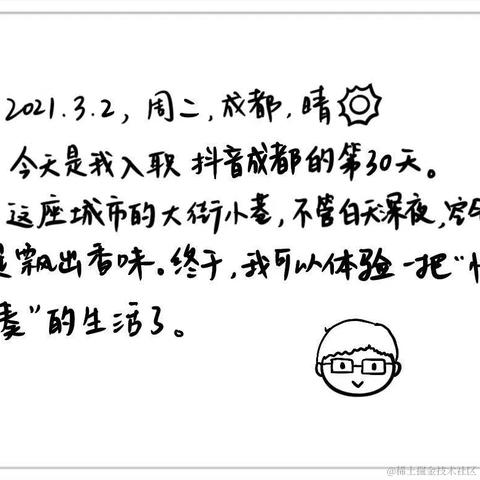 2021.3.2, 周二, 成都, 晴
今天是我入职 抖音成都的第30天。
这座城市的大街小巷, 不管白天深夜, 空
飘出香味。终于, 我可以体验一把“
奏”的生活了。
@稀土掘金技术社区